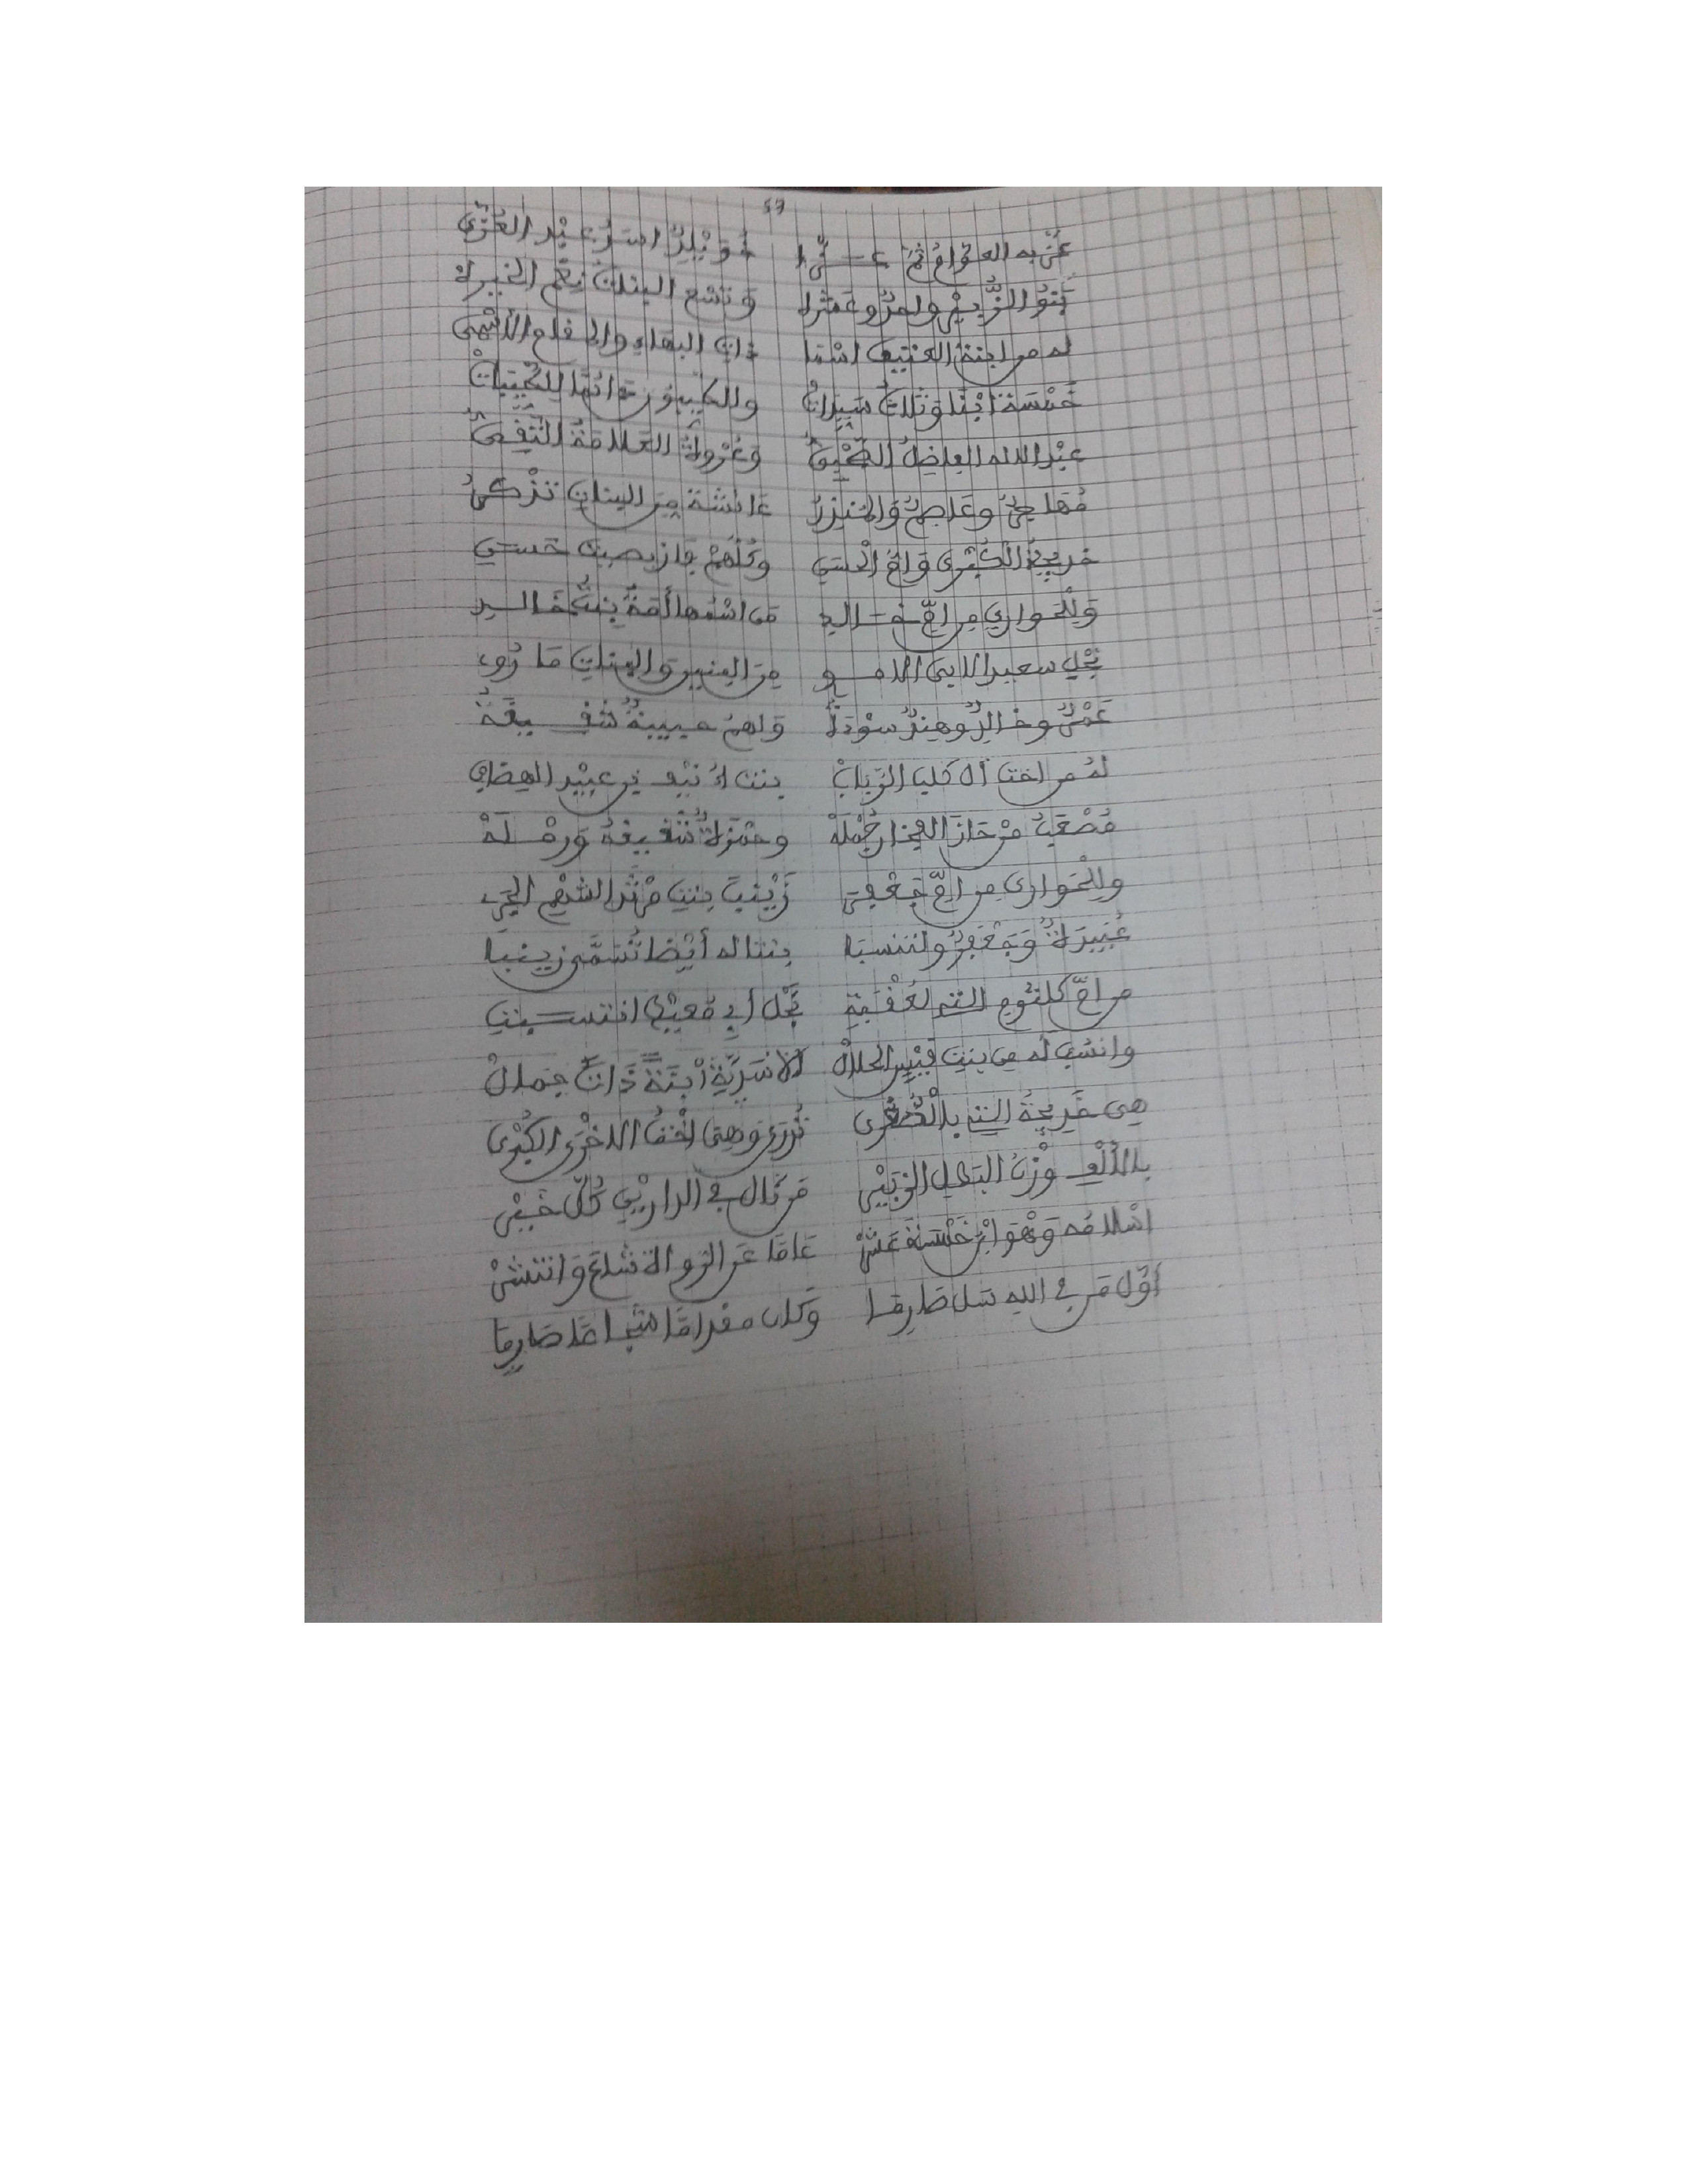 57
عَزَّ به العوَّامُ ثمَّ عَزَّا خُوَيْلِدٌ اسَدُ عبْدِ العُزَّى
بَنُو الزُّبيْرِ واحدٌ وعَشَرَه وَتسْع البناتُ نِعْمَ الخيره
له من ابنة العتيق اسْمَا ذات البهاءِ والمقام الأسْمَى
خَمْسَة أبْنا وَثلاث سَيِّدات
عبْد الالاه الفاضِلُ وَعُرْوةُ العَلَّامَةُ التَّقِيُّ
مُهاجِرٌ وعَاصِمٌ وَالمنْذِرُ عَائشة مِنَ البنات تذْكرُ
خديجةُ الْكُبْرى وَامُّ الْحَسَنِ وكُلُّهُمْ فازَ بِصيتٍ حَسَنِ
وَلِلْحواري من امِّ خـالد مَن اسْمُها أمَةُ بنتُ خَالـد
نجْلِ سعيد الابيِّ الامـوِي مِنَ البنِين وَالبنات مَا رُوِي
عَمْرٌو وخالِدٌ وهِندٌ سوْدَةُ وَامُّ حبيبةٌ شقِـيقَةُ
لهُ من اخت آل كلب الرَّبابْ بنت أُنَيْف بن عبيْد المِضْرابْ
مُصْعَبُ مَنْ حَازَ الفِخارَ جُمْلَهْ وحمْزَةٌ شقيقهُ وَرمْـلَهْ
ولِلْحَوارِي من امِّ جَعْفَر زَيْنبَ بِنتِ مَرْثَد
عُبَيدَةٌ وَجَعْفَرٌ ولتنسبا بنتا له أيْضا تُسَمَّى زينبا
من امِّ كلثوم التي لعُقْبَةِ نَجْلِ أبِي مُعَيْطٍ انتسـبتِ
وانسُبْ له من بنتِ قَيْسٍ الحلالْ الاسَديَّةِ ابْنَةً ذاتَ جمالْ
هِي خَدِيجةُ التي بالصُّغْرى تُدْعَى وَهِيَ اخْتُ الاخْرَى الكُبْرى
بالألْف وُزنَ البَطل الزُّبَيْر مَن نَال في الداريْنِ كُلَّ خَيْر
اسْلامُه وَهْوَ ابْنُ خَمْسَةَ عَشَرْ عَامًا عَن الرواة شَاعَ وَانتشرْ
أوَّل مَن في اللهِ سَل صَارِمَـا وَكان مقدامًا شُجاعًا صَارِمَا